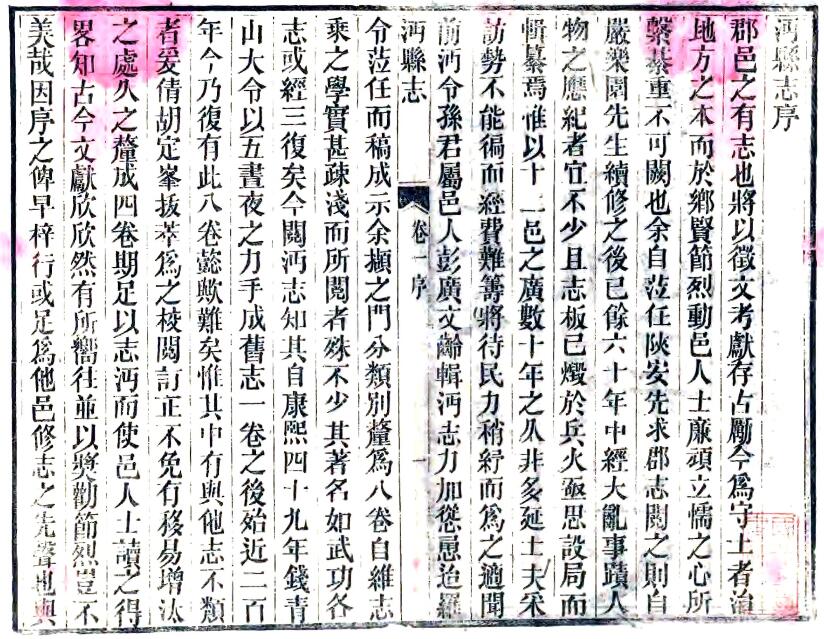 沔縣志序
郡邑之有志也將以徵文考獻存古勵今爲守土者治
地方之本而於鄉賢節烈動邑人士廉頑立懦之心所
繫綦重不可闕也余自蒞任陝安先求郡志閱之則自
嚴樂園先生續修之後已餘六十年中經大亂事蹟人
物之應紀者宜不少且志板已燬於兵火亟思設局而
輯纂焉惟以十二邑之廣數十年之久非多延士夫采
訪勢不能徧而經費難籌將待民力稍紓而爲之適聞
前沔令孫君屬邑人彭廣文齡輯沔志力加慫恿迨羅
沔縣志
卷一序
一
令蒞任而稿成示余擷之門分類別釐爲八卷自維志
乘之學實甚疎淺而所閱者殊不少其著名如武功各
志或經三復矣今閱沔志知其自康熙四十九年錢青
山大令以五晝夜之力手成舊志一卷之後始近二百
年今乃復有此八卷懿歟難矣惟其中有與他志不類
者爰倩胡定峯拔萃爲之校閱訂正不免有移易增汰
之處久之釐成四卷期足以志沔而使邑人士讀之得
畧知古今文獻欣欣然有所嚮往並以獎勸節烈豈不
美哉因序之俾早梓行或足爲他邑修志之先聲也與